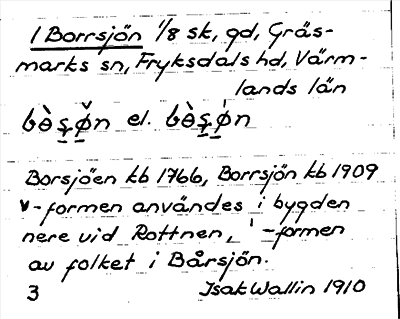 1 Borrsjön 1/8 sk, gd, Gräs-
marks sn, Fryksdals hd, Värm-
lands län
bo̠̊ el.
Borsjöen kb 1766, Borrsjön kb 1909
v-formen användes i bygden
nere vid Rottnen, '-formen
av folket i Bårsjön.
3 Isak Wallin 1910